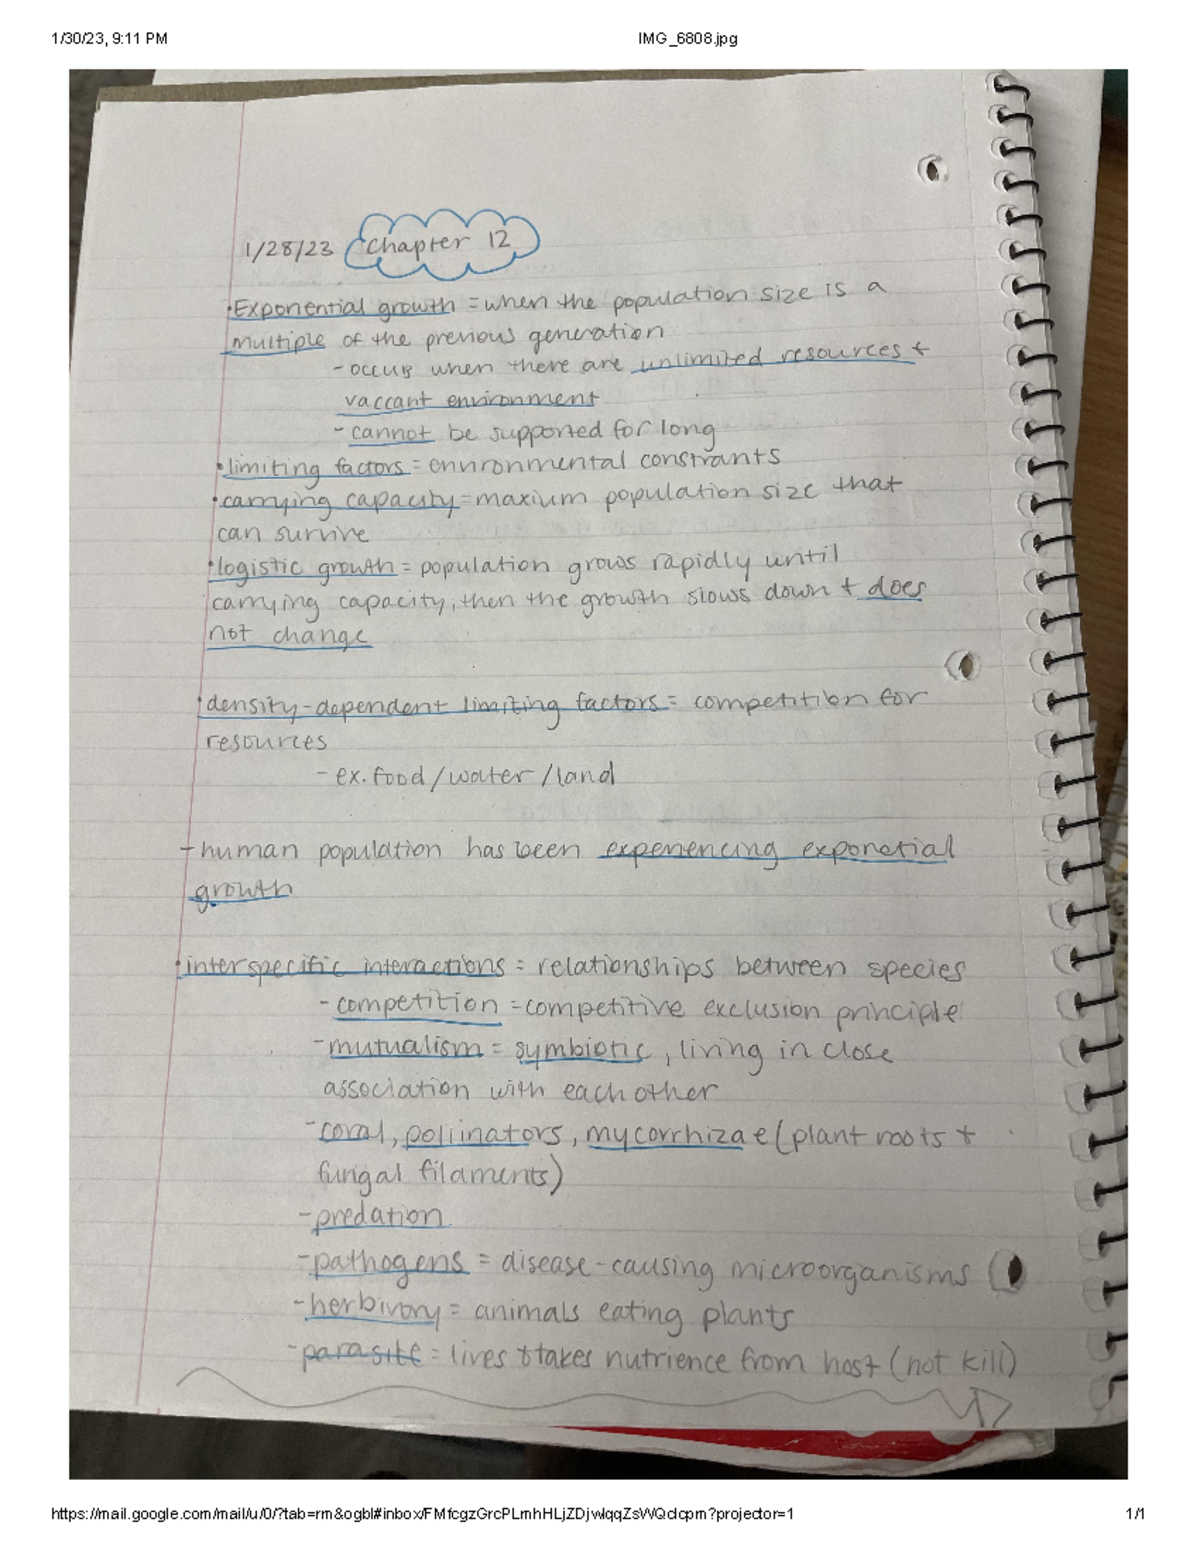 1/30/23, 9:11 PM IMG_6808.jpg
1/28/23 Chapter 12
·Exponential growth = when the population size is a
multiple of the previous generation
- occurs when there are unlimited resources +
vaccant environment
- cannot be supported for long
·limiting factors = environmental constraints
·carrying capacity = maxium population size that
can survive
·logistic growth = population grows rapidly until
carrying capacity, then the growth slows down + does
not change
·density-dependent limiting factors = competition for
resources
- ex. food/water/land
- human population has been experiencing exponetial
growth
·interspecific interactions = relationships between species
- competition = competitive exclusion principle
- mutualism = symbiotic, living in close
association with each other
- coral, pollinators, mycorrhizae (plant roots +
fungal filaments)
- predation
- pathogens = disease-causing microorganisms
- herbivory = animals eating plants
- parasite = lives + takes nutrience from host (not kill)
https://mail.google.com/mail/u/0/?tab=rm&ogbl#inbox/FMfcgzGrcPLmhHLjZDjwlqqZsWQclcpm?projector=1 1/1